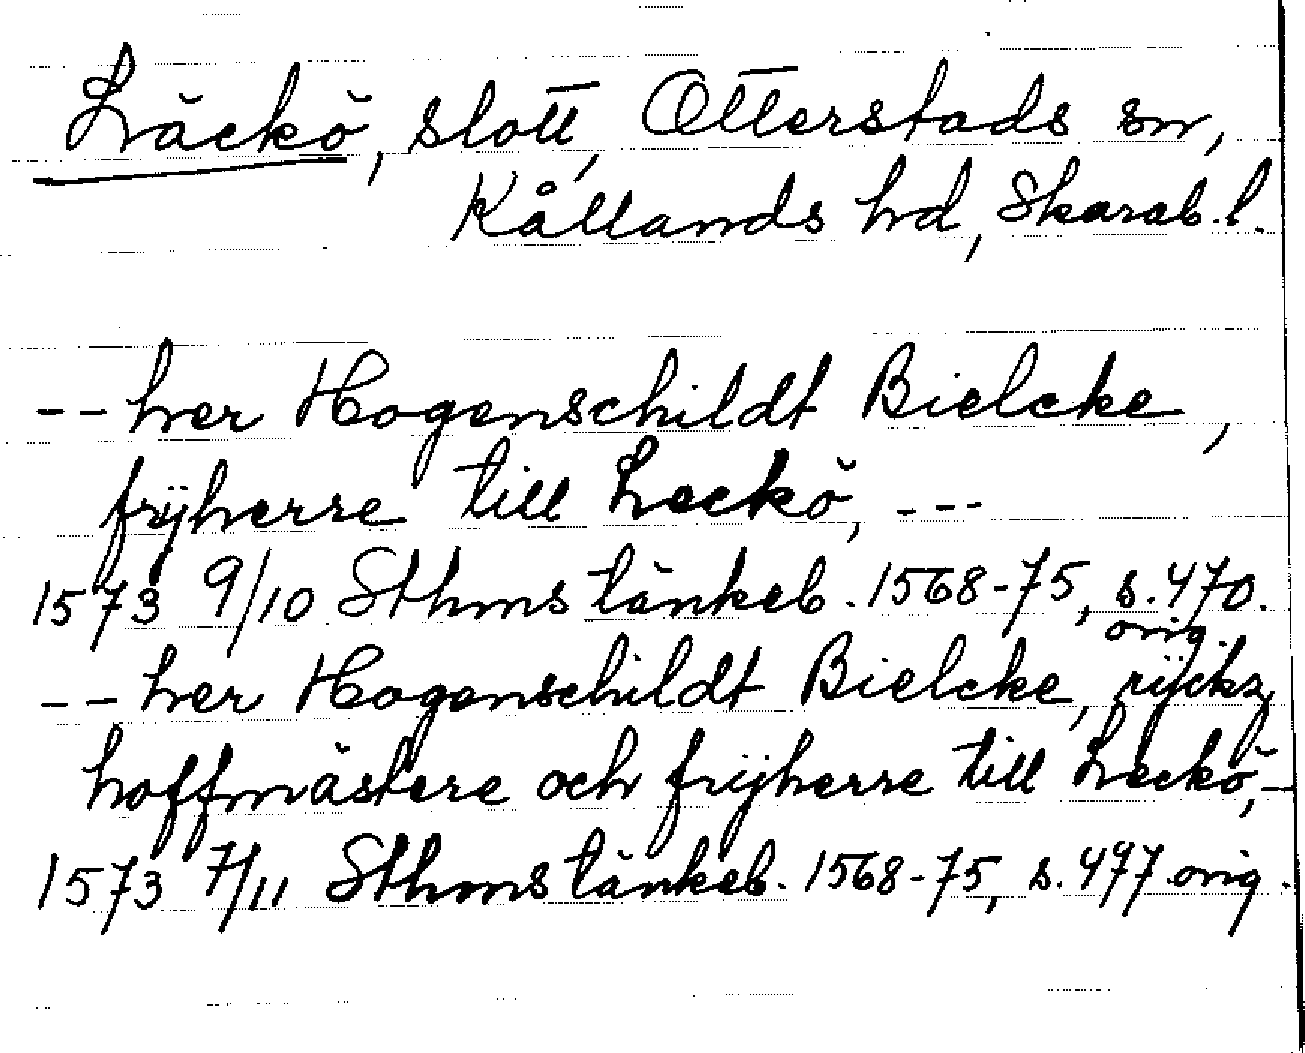 Läckö, slott, Otterstads sn,
Kållands hd, Skarab. l.
-- her Hogenschildt Bielcke,
frÿherre till Leckö, ---
1573 9/10 Sthms tänkeb. 1568-75, s. 470.
orig.
-- her Hogenschildt Bielcke, rÿckz
hoffmästere och frijherre till Leckö,-
1573 7/11 Sthms tänkeb. 1568-75, s. 497 orig.